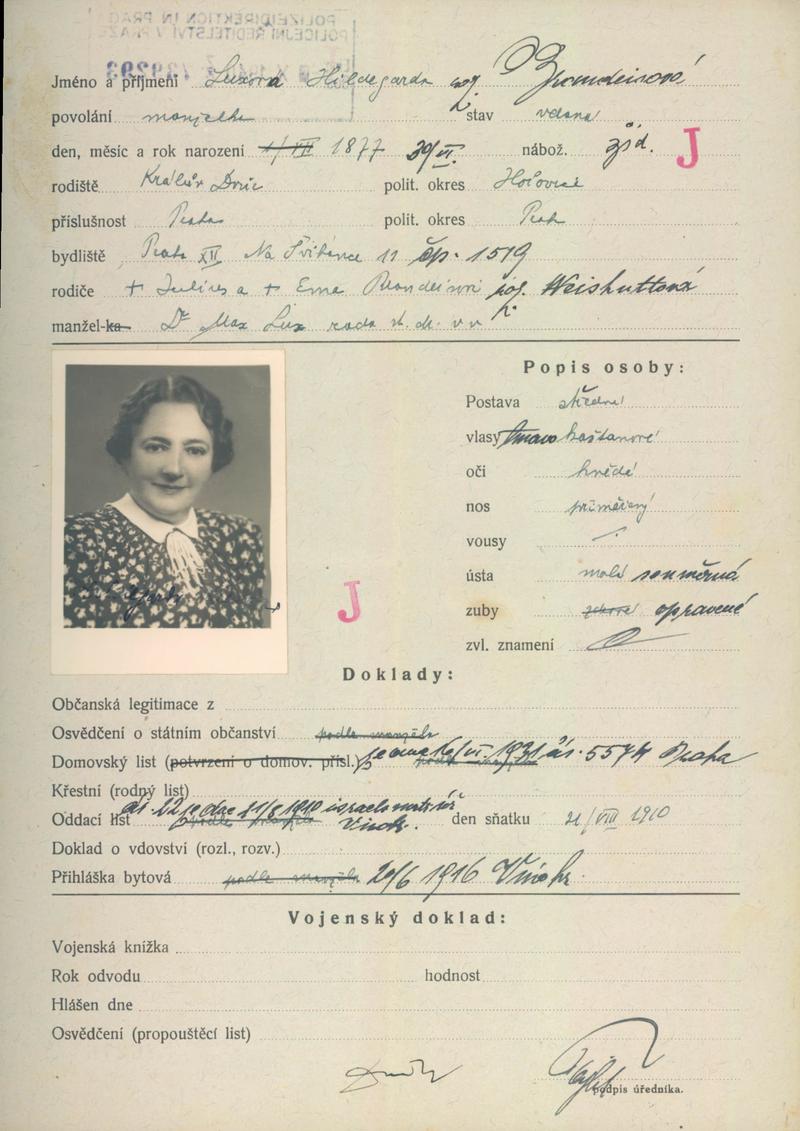 POLIZEIDIREKTION IN PRAG
POLICEJNÍ ŘEDITELSTVÍ V PRAZE
Jméno a příjmení Luxová Hildegarda roz. Brandeisová
povolání manželka stav vdaná
den, měsíc a rok narození 1877 29/VI. nábož. žid. J
rodiště Králův Dvůr polit. okres Hořovice
příslušnost Praha polit. okres Praha
bydliště Praha XII Na Švihance 11 čp. 1519
rodiče + Julius a + Ema Brandeisovi roz. Weishuttová
manžel-ka Dr Max Lux rada v. v.
Popis osoby:
Postava střední
vlasy tmavo kaštanové
oči hnědé
nos přiměřený
vousy /
ústa malá souměrná
zuby opravené
zvl. znamení
J
Doklady:
Občanská legitimace z
Osvědčení o státním občanství podle manžela
Domovský list (potvrzení o domov. přísl.) 1931 čís. 5574 Praha
Křestní (rodný list)
Oddací list 21/8 1910 israel. Vinoh. den sňatku 21/VIII 1910
Doklad o vdovství (rozl., rozv.)
Přihláška bytová podle manžela 20/6 1916 Vinohr.
Vojenský doklad:
Vojenská knížka
Rok odvodu hodnost
Hlášen dne
Osvědčení (propouštěcí list)
podpis úředníka.